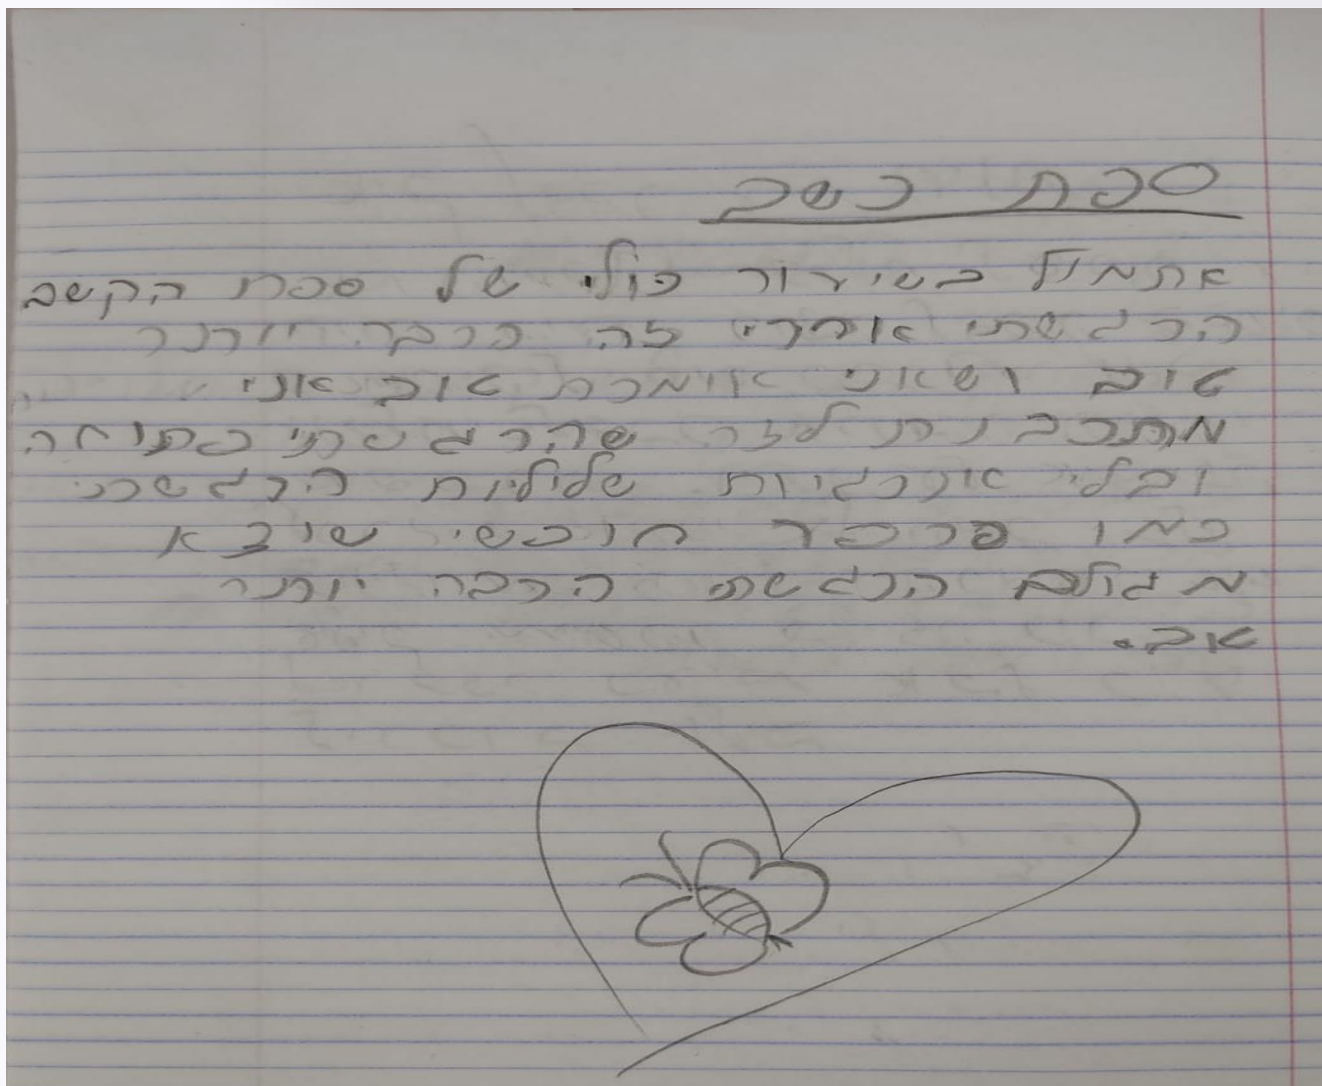 סכת כשב
אתמול בשיעור כולי של סכת הקשב
הרגשתי אחרי זה הרבה יותר
טוב ושאני אומרת טוב אני
מתכוונת לזה שהרגשתי פתוחה
ובלי אנרגיות שליליות הרגשתי
כמו פרפר חופשי שיצא
מגולם הרגשתי הרבה יותר
טוב.